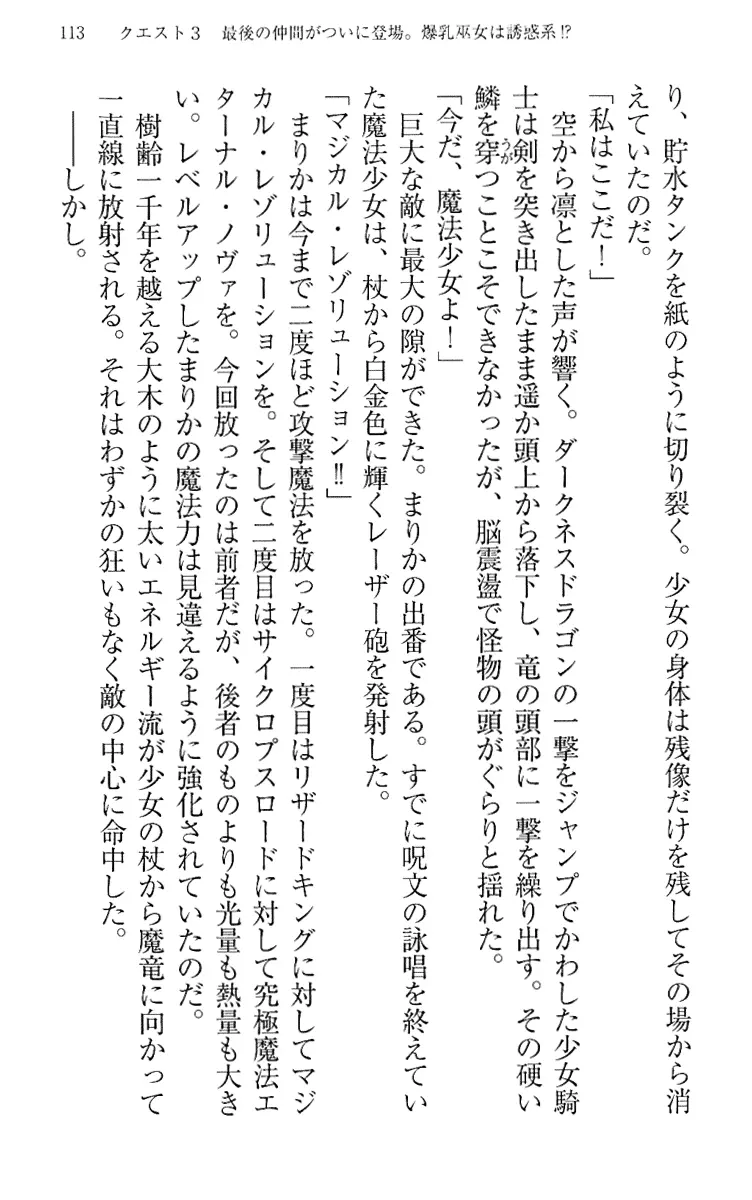 113　クエスト3　最後の仲間がついに登場。爆乳巫女は誘惑系!?
り、貯水タンクを紙のように切り裂く。少女の身体は残像だけを残してその場から消
えていたのだ。
「私はここだ！」
　空から凛とした声が響く。ダークネスドラゴンの一撃をジャンプでかわした少女騎
士は剣を突き出したまま遥か頭上から落下し、竜の頭部に一撃を繰り出す。その硬い
鱗を穿うがつことこそできなかったが、脳震盪で怪物の頭がぐらりと揺れた。
「今だ、魔法少女よ！」
　巨大な敵に最大の隙ができた。まりかの出番である。すでに呪文の詠唱を終えてい
た魔法少女は、杖から白金色に輝くレーザー砲を発射した。
「マジカル・レゾリューション!!」
　まりかは今まで二度ほど攻撃魔法を放った。一度目はリザードキングに対してマジ
カル・レゾリューションを。そして二度目はサイクロプスロードに対して究極魔法エ
ターナル・ノヴァを。今回放ったのは前者だが、後者のものよりも光量も熱量も大き
い。レベルアップしたまりかの魔法力は見違えるように強化されていたのだ。
　樹齢一千年を越える大木のように太いエネルギー流が少女の杖から魔竜に向かって
一直線に放射される。それはわずかの狂いもなく敵の中心に命中した。
　――しかし。